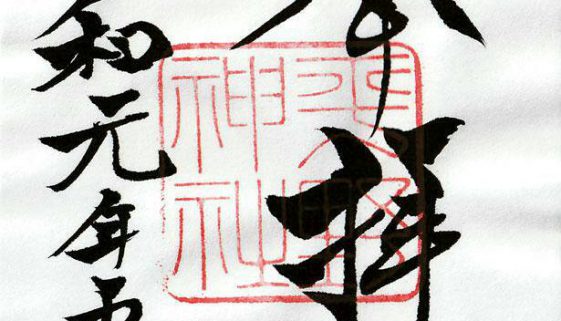 奉拝
神社
和元年